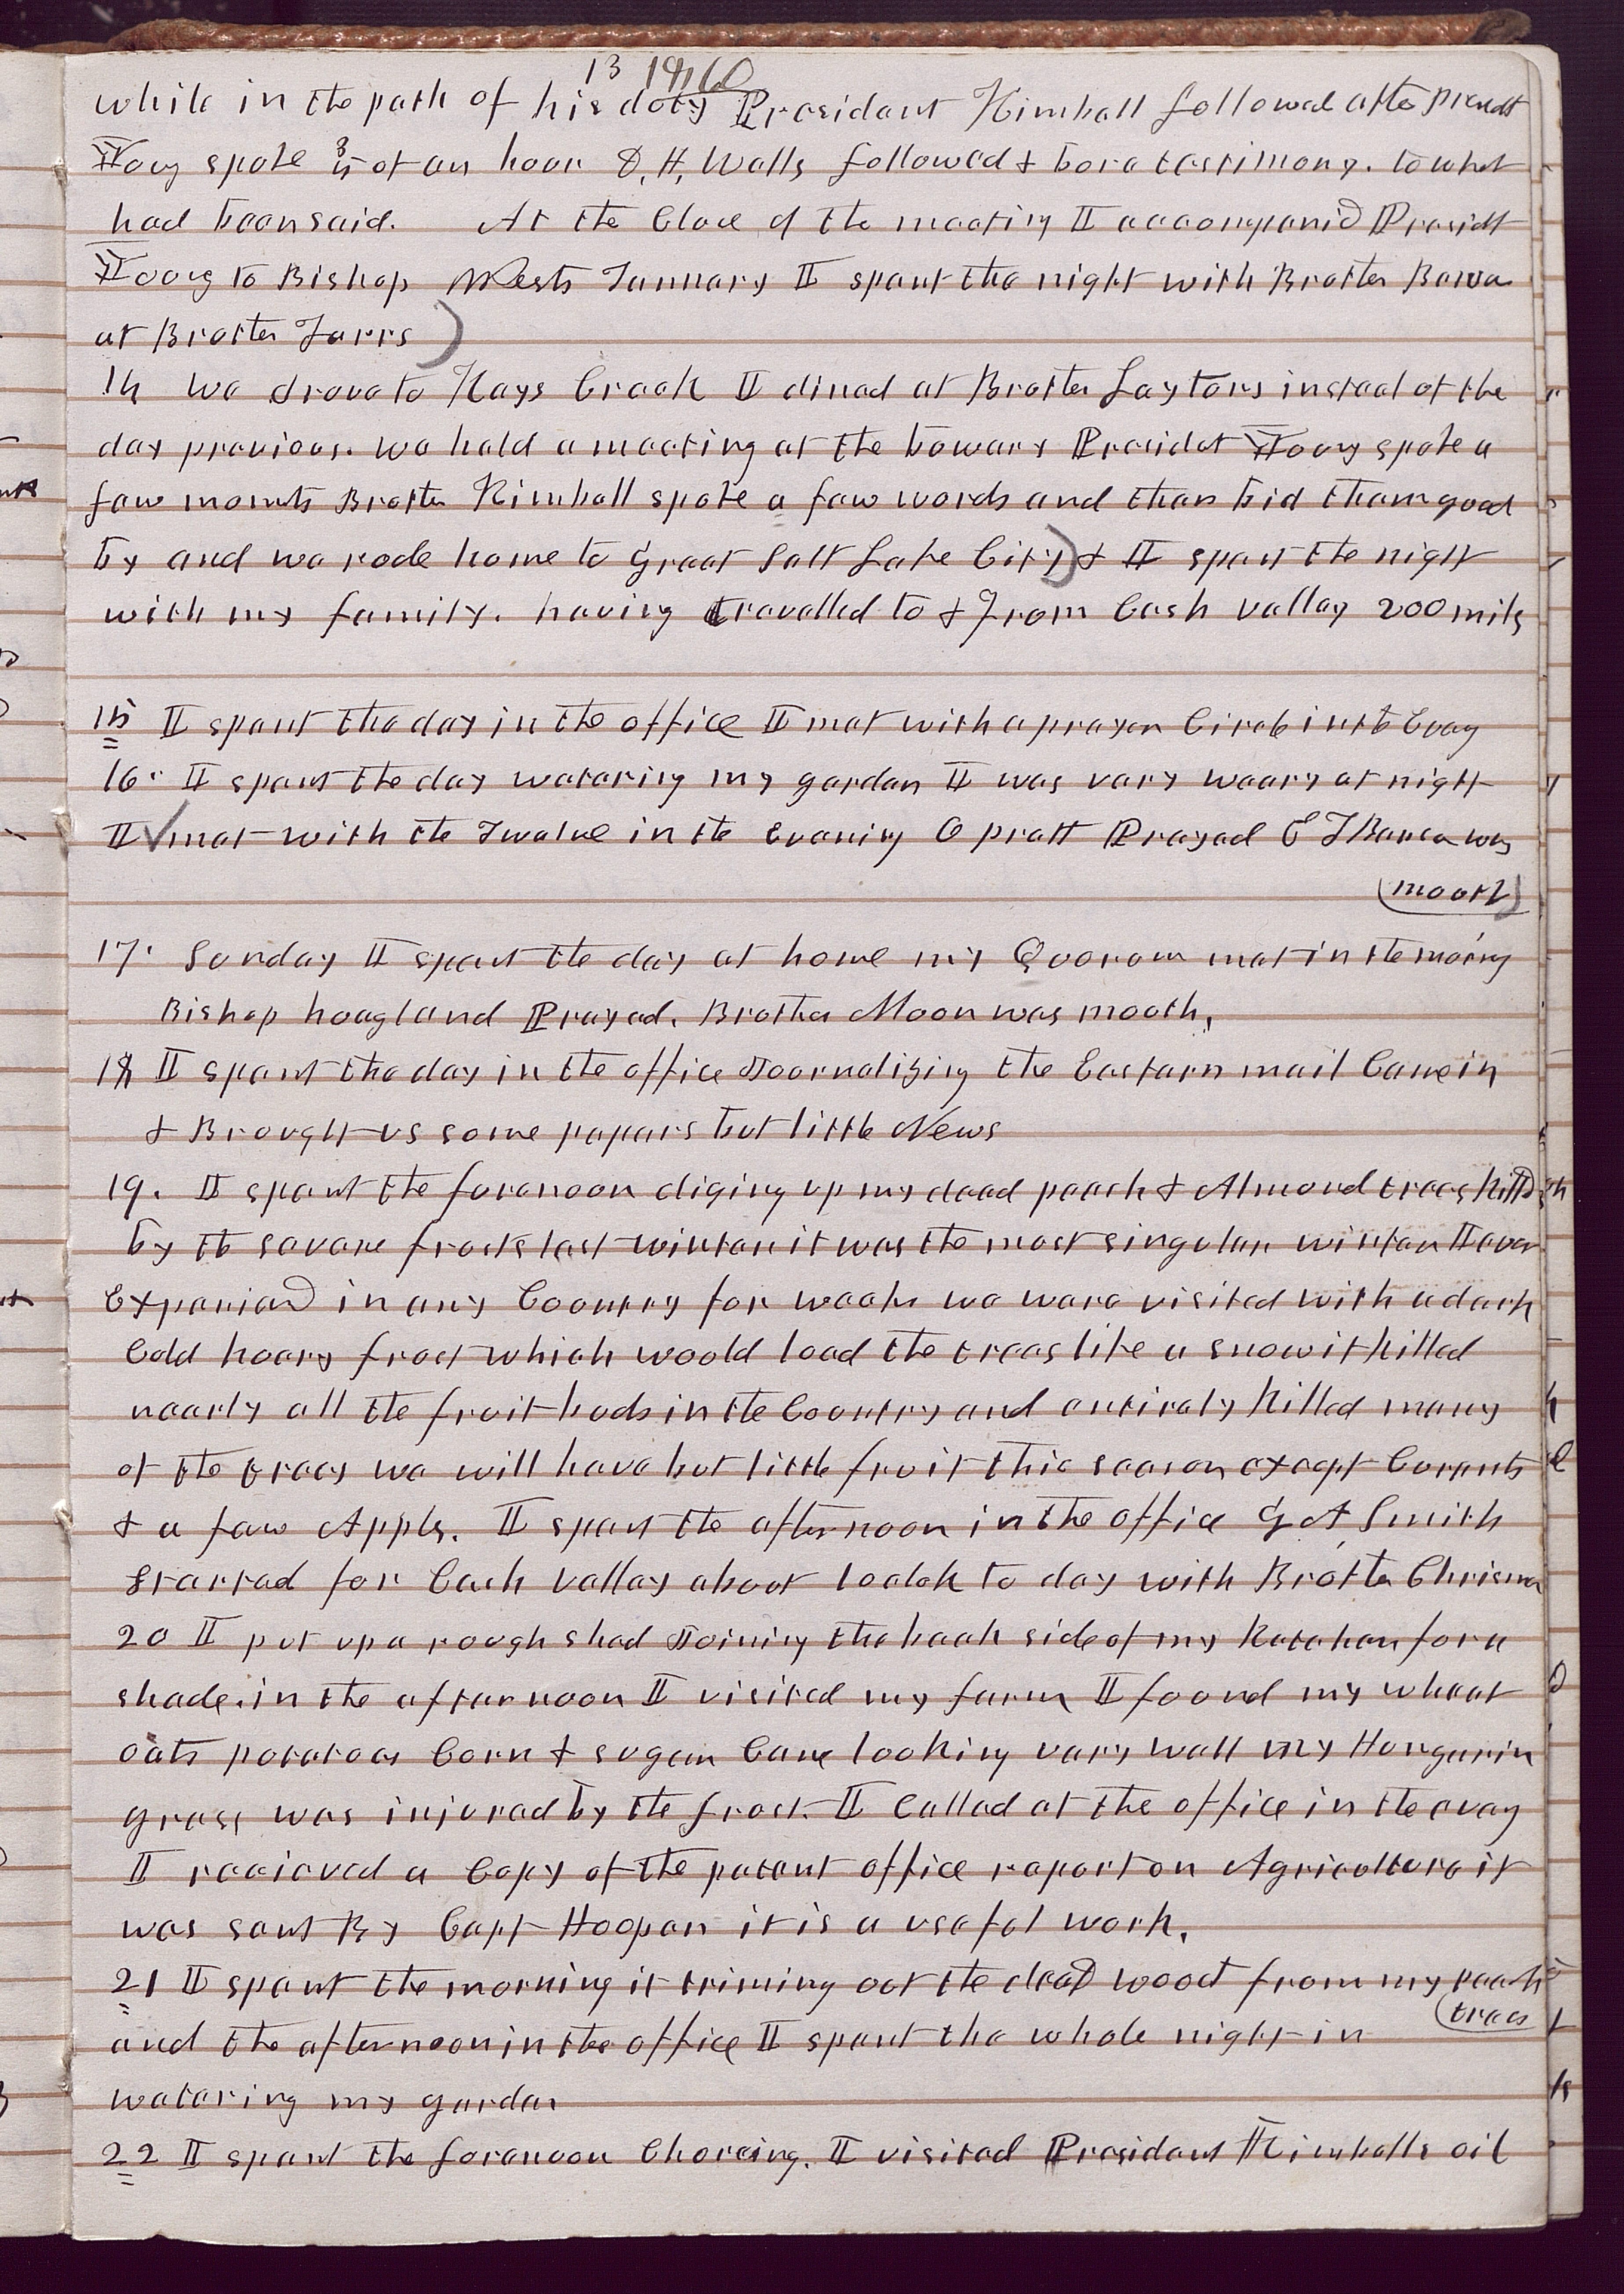 13 1860
while in the path of his duty President Kimball followed after Presidt
Young spoke 3/4 of an hour D, H, Wells followed & bore testimony. to what
had been said. At the Close of the meeting I accompanid Presidt
Young to Bishop Wests Tannary I spent the night with Brother
at Brother Farrs
14 we drove to Kays Creek I dined at Brother Laytons instead of the
day previous. we held a meeting at the bowery Presidet Young spoke a
few momts Brother Kimball spoke a few words and then bid them good
by and we rode home to Great Salt Lake City & I spent the night
with my family. having travelled to & from Cash valley 200 mils
15 I spent the day in the office I met with a prayer Circle in the Eveng
16. I spent the day watering my garden I was very weary at night
I met with the Twelve in the Evening O pratt Prayed E T Benson was
(mouth)
17. Sunday I spent the day at home my Quorum met in the morning
Bishop hoagland Prayed. Brother Moon was mouth.
18 I spent the day in the office Journalizing the Eastern mail Came in
& Brought us some papers but little News
19. I spent the forenoon diging up my dead peach & Almond trees killed
by the severe frosts last winter it was the most singular winter I ever
Experiand in any Country for weeks we were visited with a dark
Cold hoary frost which would load the trees like a snow it killed
nearly all the fruit buds in the Country and entirely killed many
of the trees we will have but little fruit this season except Currants
& a few Appls. I spent the afternoon in the office G A Smith
started for Cach valley about 10 oclok to day with Brother Chrisman
20 I put up a rough shed Joining the back side of my Ketchen for a
shade. in the afternoon I visited my farm I found my wheat
oats potatoes Corn & sugar Cane looking very well my Hungarin
grass was injured by the frost. I Called at the office in the eveng
I recieved a Copy of the patent office report on Agriculture it
was sent By Capt Hooper it is a useful work.
21 I spent the morning it triming out the dead wood from my peach
(trees
and the afternoon in the office I spent the whole night in
watering my garden
22 I spent the forenoon Choreing. I visited President Kimballs oil